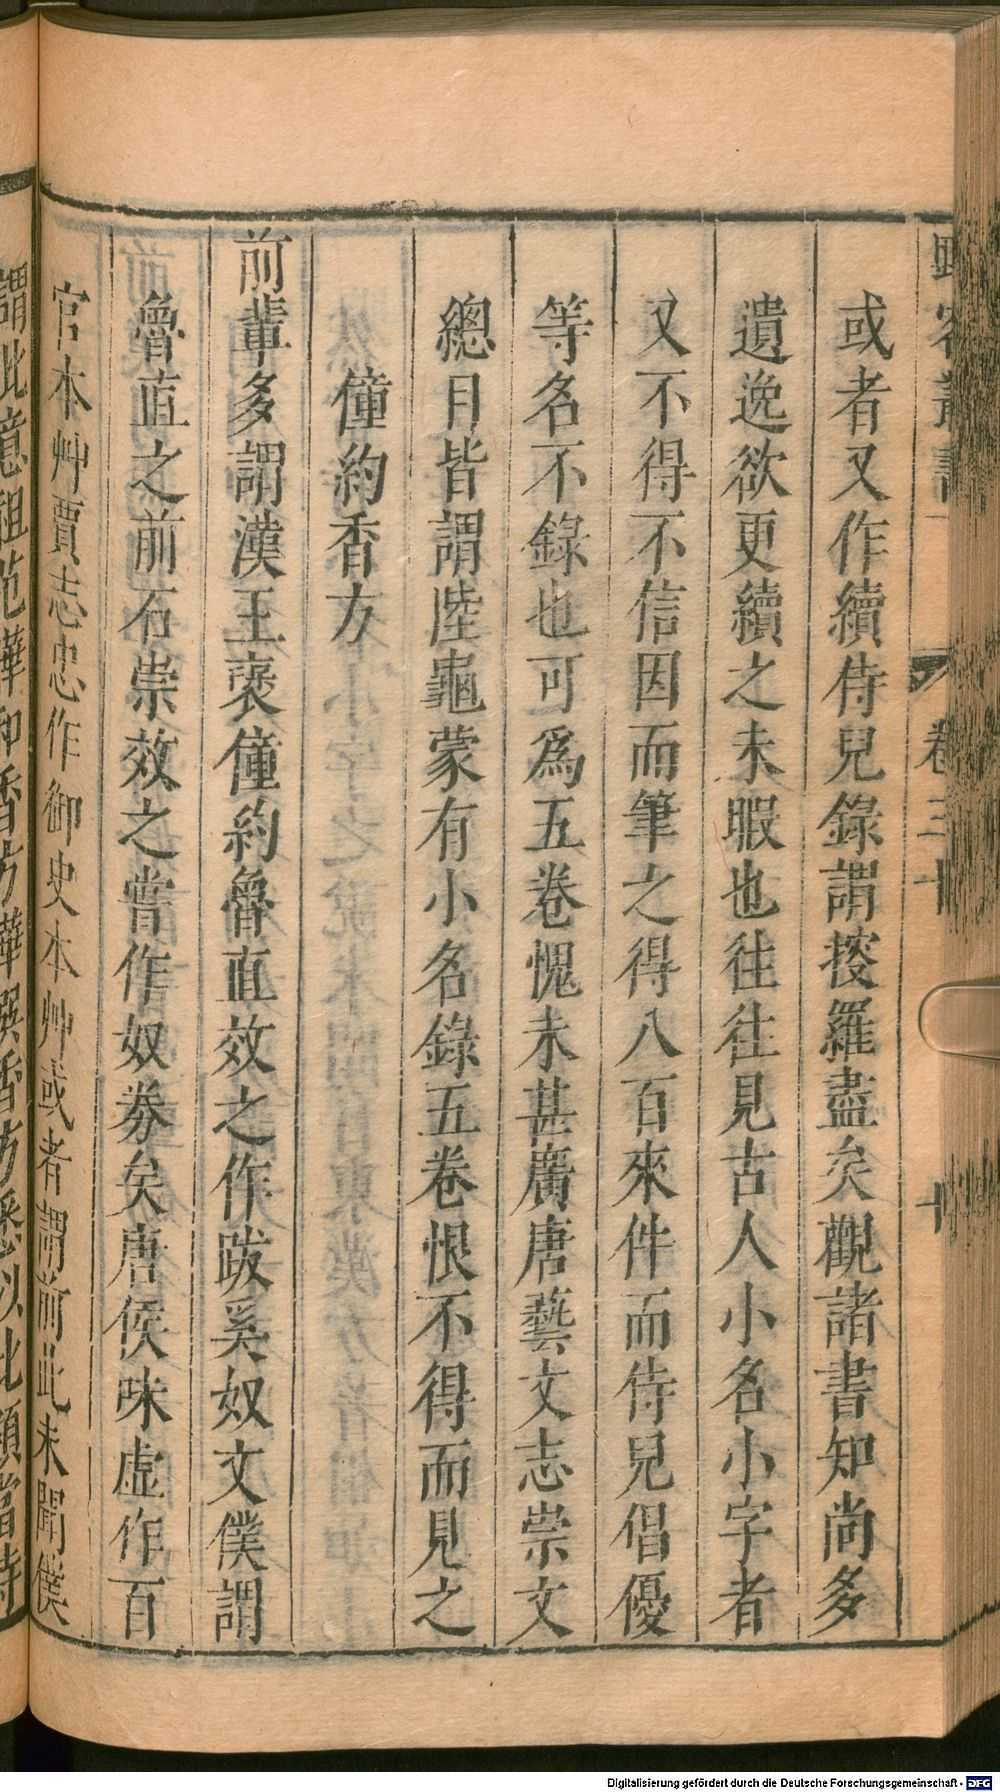 野客叢書
卷三十
十
或者又作續侍兒錄謂搜羅盡矣觀諸書知尚多
遺逸欲更續之未暇也往往見古人小名小字者
又不得不信因而筆之得八百來件而侍兒倡優
等名不錄也可爲五卷愧未甚廣唐藝文志崇文
總目皆謂陸龜蒙有小名錄五卷恨不得而見之
僮約香方
前輩多謂漢王褒僮約魯直效之作跛奚奴文僕謂
魯直之前石崇效之嘗作奴券矣唐侯味虛作百
官本艸賈志忠作御史本艸或者謂前此未聞僕
謂此意祖范曄和香方曄撰香方悉以比類當時
Digitalisierung gefördert durch die Deutsche Forschungsgemeinschaft - DFG